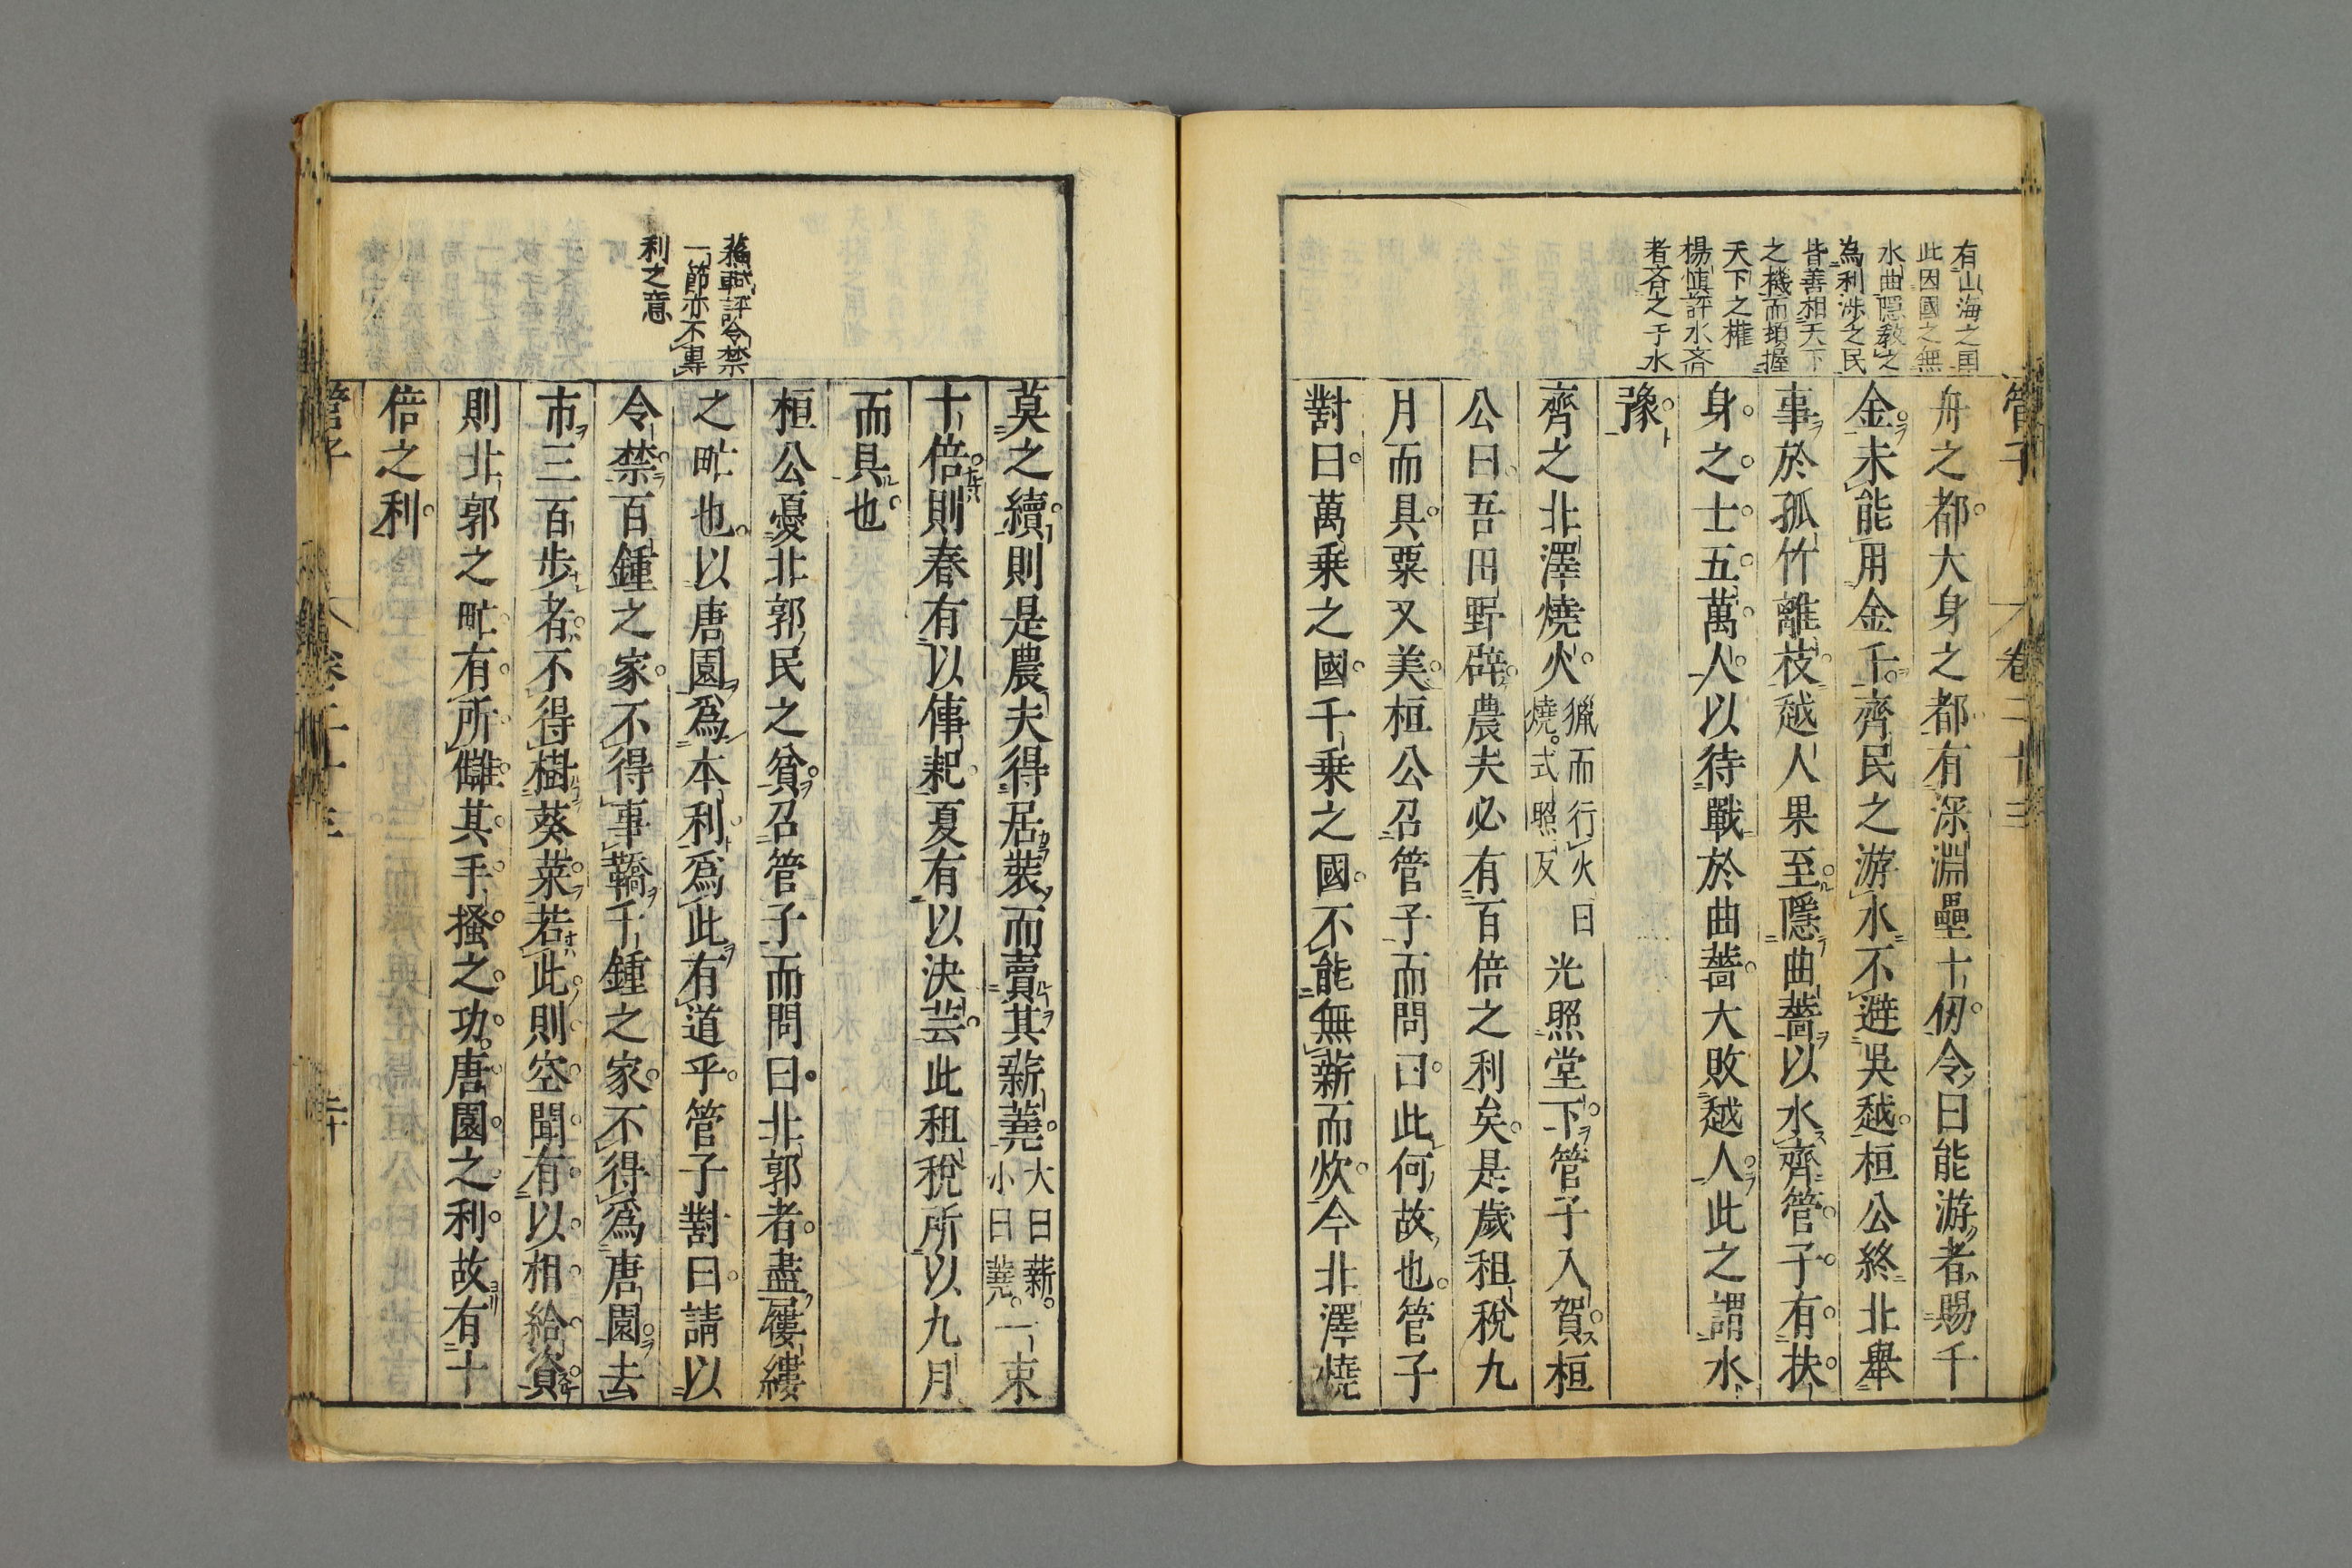 管子 卷二十三
有山海之国
此因國之無
水曲隱教之
為利涉之民
皆善相天下
之機而頃握
天下之権
楊慎評水斉
者斉之于水
舟之都大身之都有深淵壘十仭令曰能游者賜千
金未能用金千齊民之游水不避吳越桓公終北舉
事於孤竹離枝越人果至隱曲薔以水齊管子有扶
身之士五萬人以待戰於曲薔大敗越人此之謂水
豫
齊之北澤燒火獵而行火曰燒式照反光照堂下管子入賀桓
公曰吾田野辟農夫必有百倍之利矣是歲租稅九
月而具粟又美桓公召管子而問曰此何故也管子
對曰萬乘之國千乘之國不能無薪而炊今北澤燒
一節亦不專
利之意
莫之續則是農夫得居裝而賣其薪蕘大曰薪小曰蕘一束
十倍則春有以倳耜夏有以決芸此租稅所以九月
而具也
桓公憂北郭民之貧召管子而問曰北郭者盡屨縷
之甿也以唐園爲本利爲此有道乎管子對曰請以
令禁百鍾之家不得事鞽千鍾之家不得爲唐園去
市三百步者不得樹葵菜若此則空閒有以相給資
則北郭之甿有所讎其手搔之功唐園之利故有十
倍之利
管子 卷二十三 二十